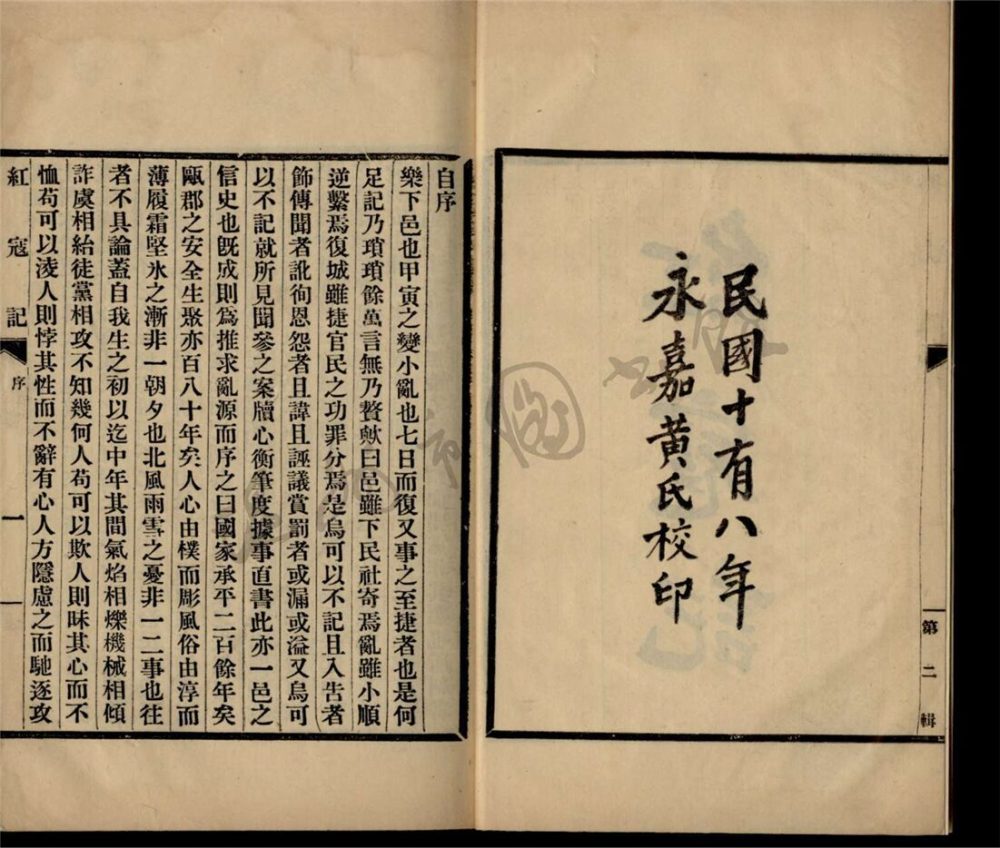 民國十有八年
永嘉黃氏校印
第二輯
自序
樂下邑也甲寅之變小亂也七日而復又事之至捷者也是何
足記乃瑣瑣餘萬言無乃贅歟曰邑雖下民社寄焉亂雖小順
逆繫焉復城雖捷官民之功罪分焉是烏可以不記且入告者
飾傳聞者訛徇恩怨者且諱且誣議賞罰者或漏或溢又烏可
以不記就所見聞參之案牘心衡筆度據事直書此亦一邑之
信史也既成則為推求亂源而序之曰國家承平二百餘年矣
甌郡之安全生聚亦百八十年矣人心由樸而彫風俗由淳而
薄履霜堅氷之漸非一朝夕也北風雨雪之憂非一二事也往
者不具論蓋自我生之初以迄中年其間氣焰相爍機械相傾
詐虞相紿徒黨相攻不知幾何人苟可以欺人則昧其心而不
恤苟可以淩人則悖其性而不辭有心人方隱慮之而馳逐攻
紅寇記
序
一